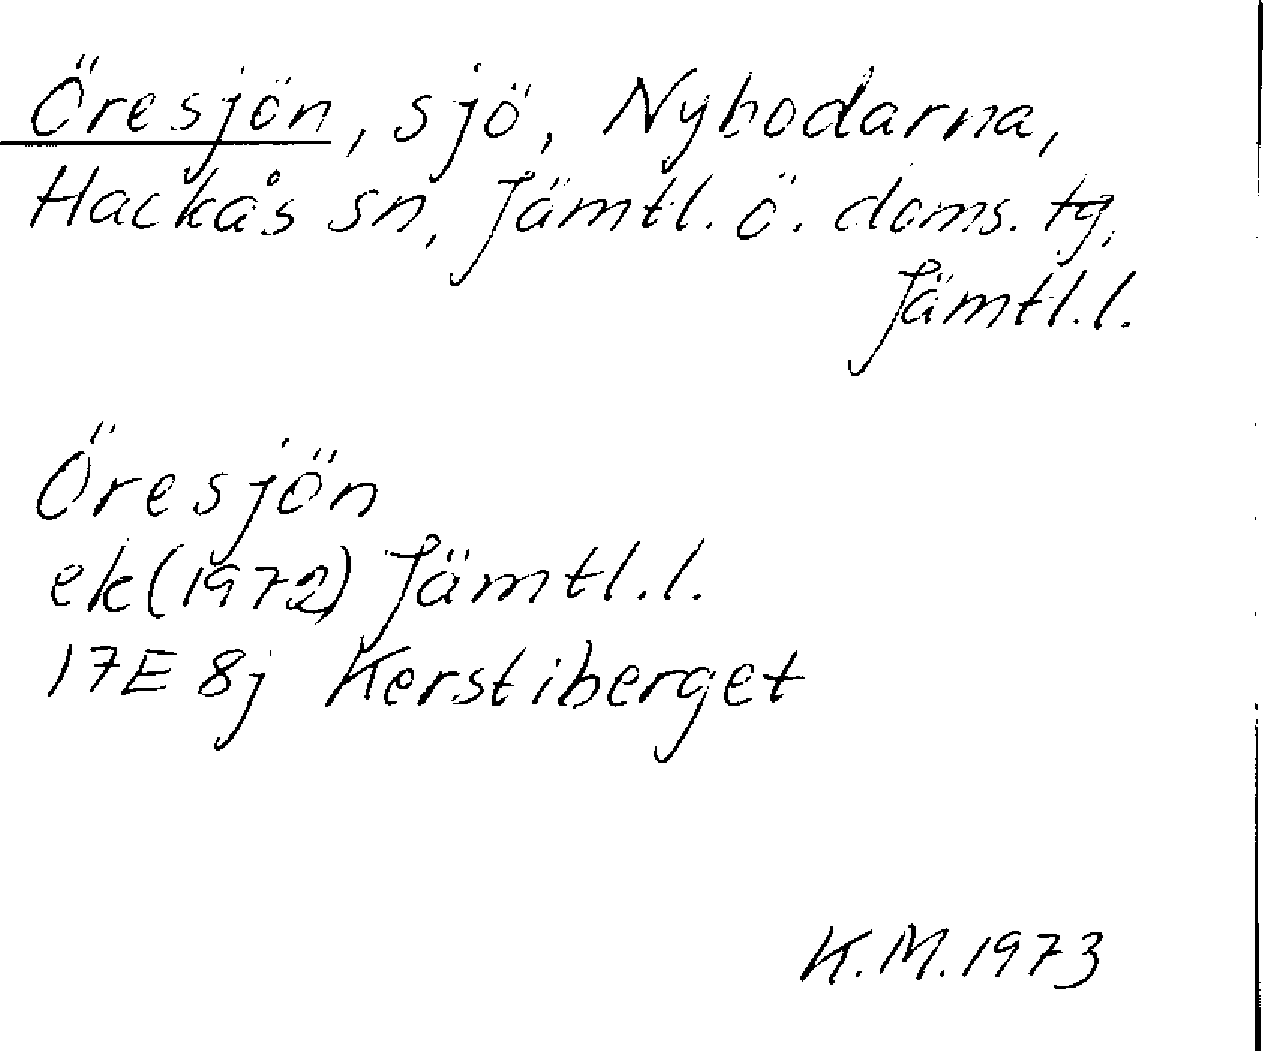 Öresjön, sjö, Nybodarna,
Hackås sn, Jämtl. ö. doms. tg,
Jämtl.l.
Öresjön
ek(1972) Jämtl.l.
17E 8j Kerstiberget
K.M.1973